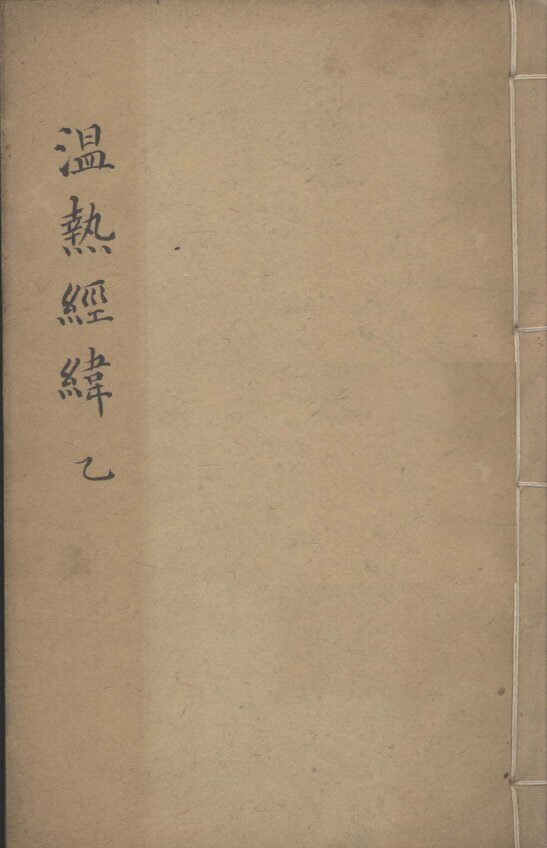 温熱經緯 乙